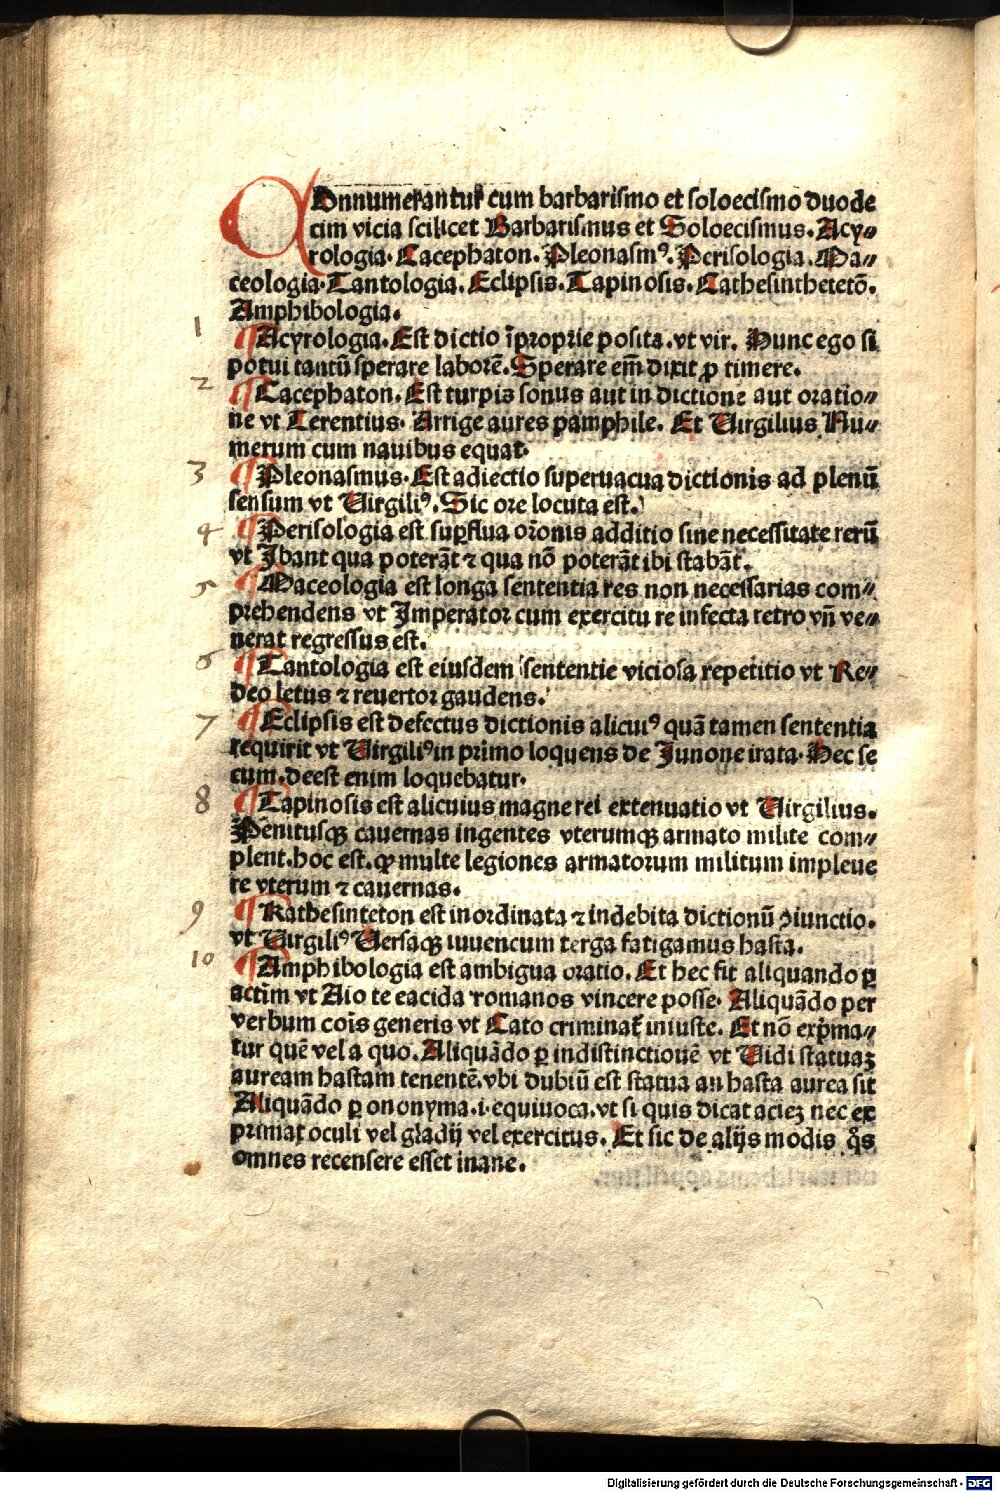 Annumerantur cum barbarismo et soloecismo duode
cim vicia scilicet Barbarismus et Soloecismus. Acy⸗
rologia. Cacephaton. Pleonasmꝰ. Perisologia. Ma⸗
ceologia. Tantologia. Eclipsis. Tapinosis. Cathesinthetetō.
Amphibologia.
1 ¶Acyrologia. Est dictio īproprie posita. vt vir. Nunc ego si
potui tantū sperare laborē. Sperare em̄ dixit ꝓ timere.
2 ¶Cacephaton. Est turpis sonus aut in dictione aut oratio⸗
ne vt Terentius. Arrige aures pamphile. Et Uirgilius Nu⸗
merum cum nauibus equat.
3 ¶Pleonasmus. Est adiectio superuacua dictionis ad plenū
sensum vt Uirgiliꝰ. Sic ore locuta est.
4 ¶Perisologia est suꝑflua or̄onis additio sine necessitate rerū
vt Ibant qua poterāt ⁊ qua nō poterāt ibi stabāt.
5 ¶Maceologia est longa sententia res non necessarias com⸗
prehendens vt Imperator cum exercitu re infecta retro vn̄ ve⸗
nerat regressus est.
6 ¶Tantologia est eiusdem sententie viciosa repetitio vt Re⸗
deo letus ⁊ reuertor gaudens.
7 ¶Eclipsis est defectus dictionis alicuiꝰ quā tamen sententia
requirit vt Uirgiliꝰ in primo loquens de Junone irata. Hec se
cum. deest enim loquebatur.
8 ¶Tapinosis est alicuius magne rei extenuatio vt Uirgilius.
Penitusqꝫ cauernas ingentes vterumqꝫ armato milite com⸗
plent. hoc est. qꝙ multe legiones armatorum militum impleue
re vterum ⁊ cauernas.
9 ¶Kathesinteton est inordinata ⁊ indebita dictionū ꝯiunctio.
vt Uirgiliꝰ Uersaqꝫ iuuencum terga fatigamus hasta.
10 ¶Amphibologia est ambigua oratio. Et hec fit aliquando ꝑ
actīm vt Aio te eacida romanos vincere posse. Aliquādo per
verbum cōis generis vt Cato criminat̄ iniuste. Et nō exp̄ma⸗
tur quē vel a quo. Aliquādo ꝑ indistinctionē vt Uidi statuaꝫ
auream hastam tenentē. vbi dubiū est statua an hasta aurea sit
Aliquādo ꝑ ononyma. i. equiuoca. vt si quis dicat acieꝫ nec ex
primat oculi vel gladij vel exercitus. Et sic de alijs modis q̊s
omnes recensere esset inane.
Digitalisierung gefördert durch die Deutsche Forschungsgemeinschaft - DFG